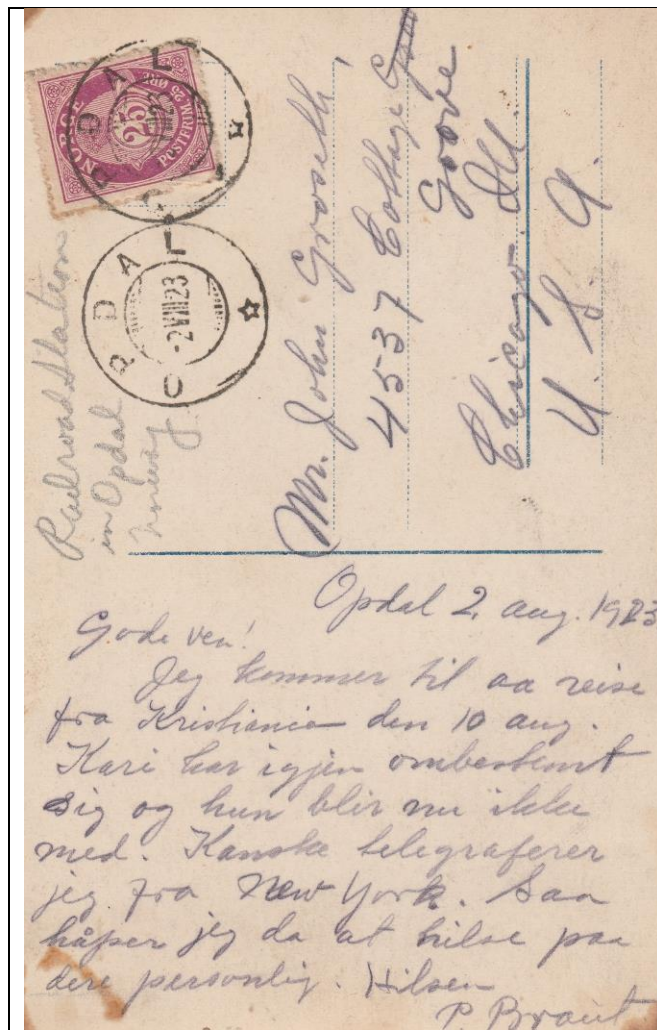 NORGE
25
POSTFRIM 25 ØRE
OPDAL
OPDAL
-2 VIII 23
Railroad Station
in Opdal
Norway
Mr. John Groseth
4537 Cottage
Groove
Chicago. Ill.
U. S. A.
Opdal 2. aug. 1923
Gode ven!
Jeg kommer til aa reise
fra Kristiania den 10 aug.
Kari har igjen ombestemt
sig og hun blir nu ikke
med. Kanske telegraferer
jeg fra New York. Saa
håper jeg da at hilse paa
dere personlig. Hilsen